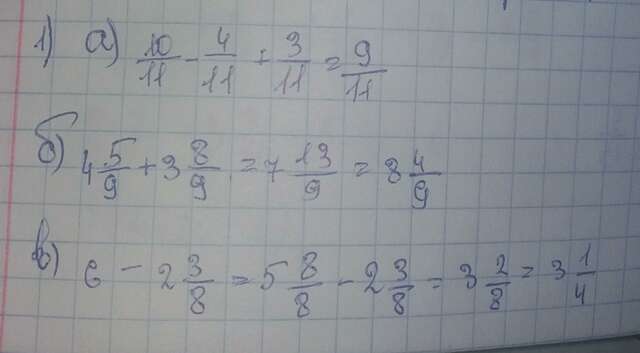 1) а) 10/11 - 4/11 + 3/11 = 9/11
б) 4 5/9 + 3 8/9 = 7 13/9 = 8 4/9
в) 6 - 2 3/8 = 5 8/8 - 2 3/8 = 3 2/8 = 3 1/4